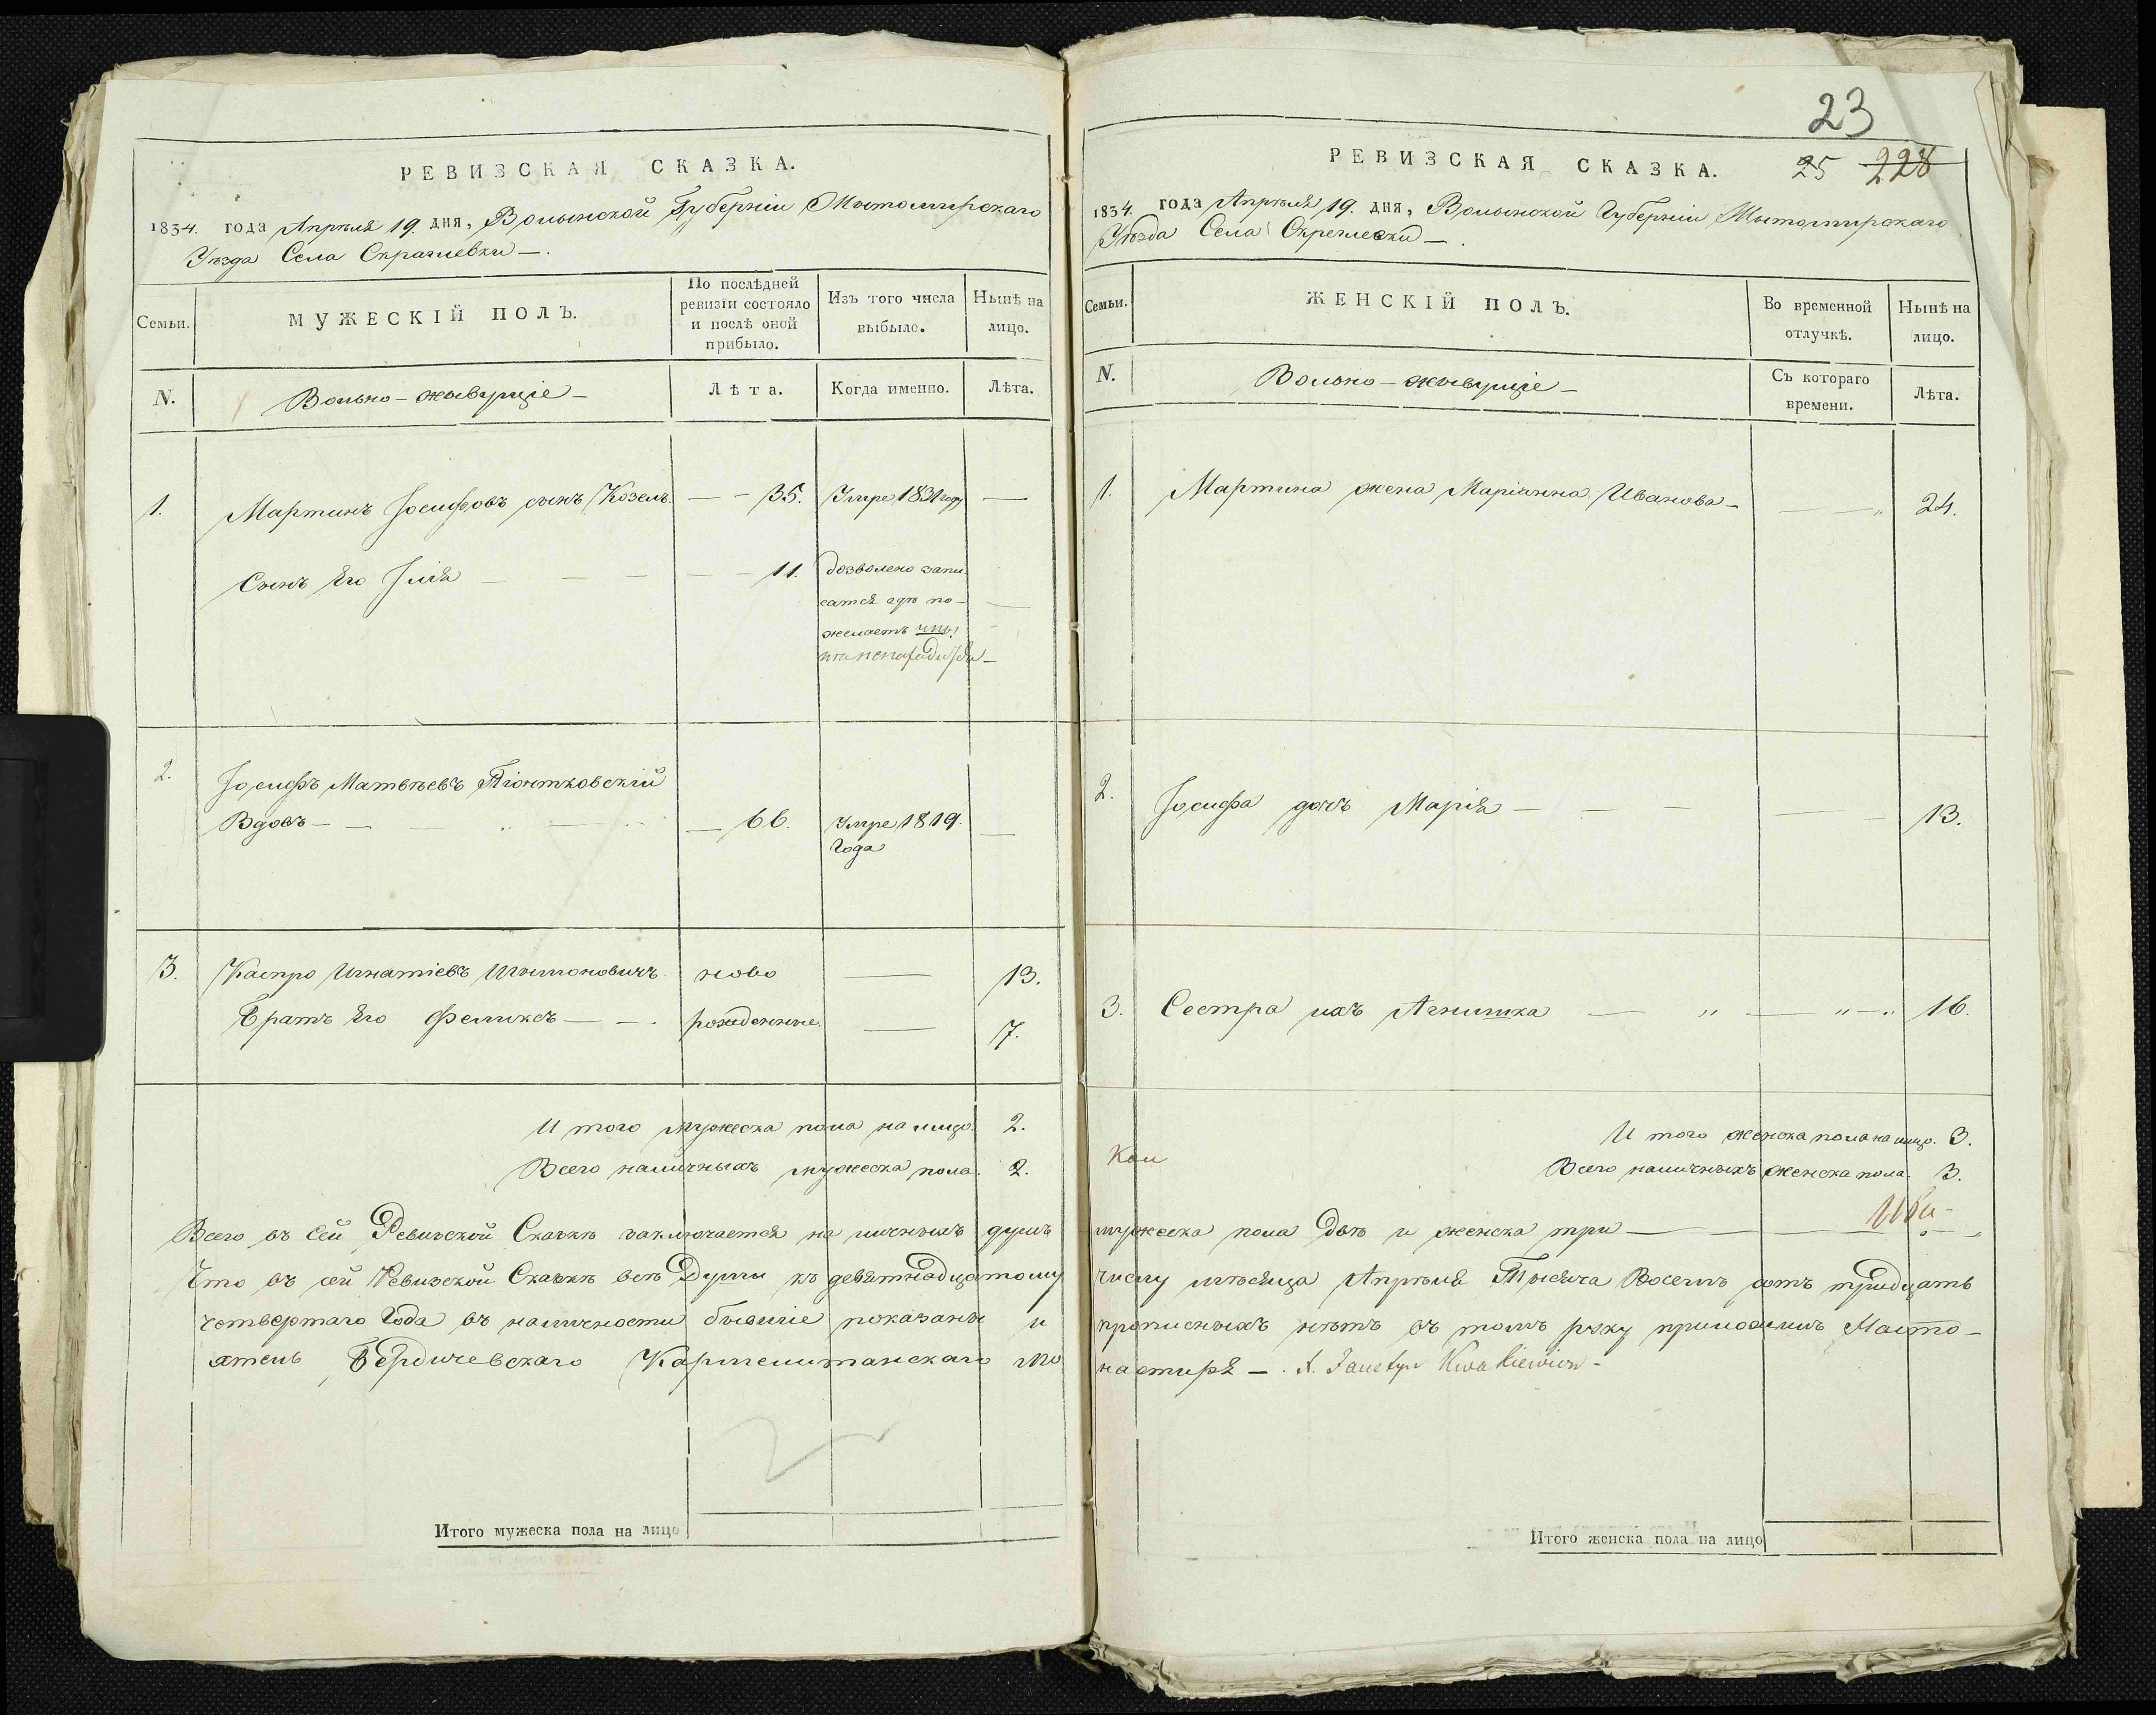 РЕВИЗСКАЯ СКАЗКА.
1834. года Апрѣля 19. дня, Волынской Губерніи Житомирскаго
Уѣзда Села Скраглевки —.
Семьи.
МУЖЕСКІЙ ПОЛЪ.
По послѣдней
ревизіи состояло
и послѣ оной
прибыло.
Изъ того числа
выбыло.
Нынѣ на
лицо.
N.
Вольно-живущіе —
Лѣта.
Когда именно.
Лѣта.
1. Мартинъ Іосифовъ сынъ Козелъ. — — 35. Умре 1831 году —
Сынъ Его Илія — — — — 11. дозволено запи
сатся гдѣ по —
желаетъ
2. Іосифъ Матвѣевъ Піонтковскій
Вдовъ — — — — 66. Умре 1819. —
Года
3. Каспро Игнатіевъ Шимоновичъ. ново — 13.
Братъ Его Феликсъ — —. рожденные. — 7.
И того мужеска пола на лицо. 2.
Всего наличныхъ мужеска пола. 2.
Всего въ сей Ревизской Сказкѣ заключается на личныхъ душъ
Что въ сей Ревизской Сказкѣ всѣ Души къ девятнадцатому
четвертаго Года въ наличности бывшіе показаны и
ятель Бердичевскаго Кармелитанскаго мо
Итого мужеска пола на лицо
23
25 228
РЕВИЗСКАЯ СКАЗКА.
1834. года Апрѣля 19. дня, Волынской Губерніи Житомирскаго
Уѣзда Села Скреглевки —.
Семьи.
ЖЕНСКІЙ ПОЛЪ.
Во временной
отлучкѣ.
Нынѣ на
лицо.
N.
Вольно-живущіе —
Съ котораго
времени.
Лѣта.
1. Мартина жена Маріанна Иванова — — — 24.
2. Іосифа дочь Марія — — — — — 13.
3. Сестра ихъ Агнишка — „ — „ — „ 16.
И того женска пола на лицо. 3.
Всего наличныхъ женска пола. 3.
мужеска пола двѣ и женска три —
числу мѣсяца Апрѣля Тысяча Восемь сотъ тридцать
прописныхъ нѣтъ въ томъ руку приложилъ Насто —
настиря —. X. Faustyn Kwatkiewicz —
Итого женска пола на лицо